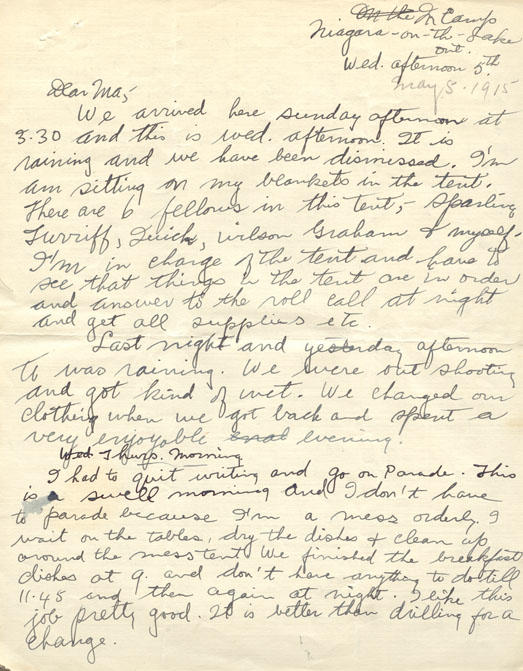 On the In Camp
Niagara-on-the-Lake
Ont.
Wed. afternoon 5th
May 5. 1915
Dear Ma;-
We arrived here Sunday afternoon at
3.30 and this is Wed. afternoon. It is
raining and we have been dismissed. I'm
am sitting on my blankets in the tent.
There are 6 fellows in this tent,- Sparling
Turriff, Quick, Wilson Graham & myself-
I'm in charge of the tent and have to
see that things in the tent are in order
and answer to the roll call at night
and get all supplies etc.
Last night and yesterday afternoon
it was raining. We were out shooting
and got kind of wet. We changed our
clothing when we got back and spent a
very enjoyable evening.
Wed Thurs. Morning
I had to quit writing and go on Parade. This
is a swell morning and I don't have
to parade because I'm a mess orderly. I
wait on the tables, dry the dishes & clean up
around the mess tent. We finished the breakfast
dishes at 9. and don't have anything to do till
11.45 and then again at night. I like this
job pretty good. It is better than drilling for a
change.